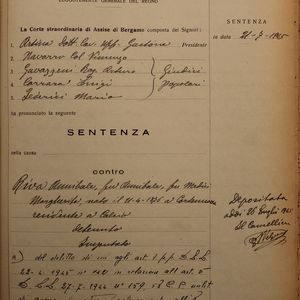 LUOGOTENENTE GENERALE DEL REGNO
SENTENZA
in data 21-7-1945
La Corte straordinaria di Assise di Bergamo composta dei Signori:
1. Dott. Cav. Uff. Gastone Presidente
2. Navarro Col. Vincenzo
3. Gavazzeni Rag. Arturo Giudici
4. Carrara Luigi Popolari
5. Federici Mario
ha pronunciato la seguente
SENTENZA
nella causa
contro
Riva Annibale, fu Annibale, fu Medici
Margherita, nato il
residente a
Detenuto
Imputato
Depositata
addì 26 luglio
Il Cancelliere
a) del delitto di cui agli art. 1 p.p. D.L.L.
22-4-1945 n° 142 in relazione all'art. 5
D.L.L. 27-7-1944 n° 159, 58 C.P.